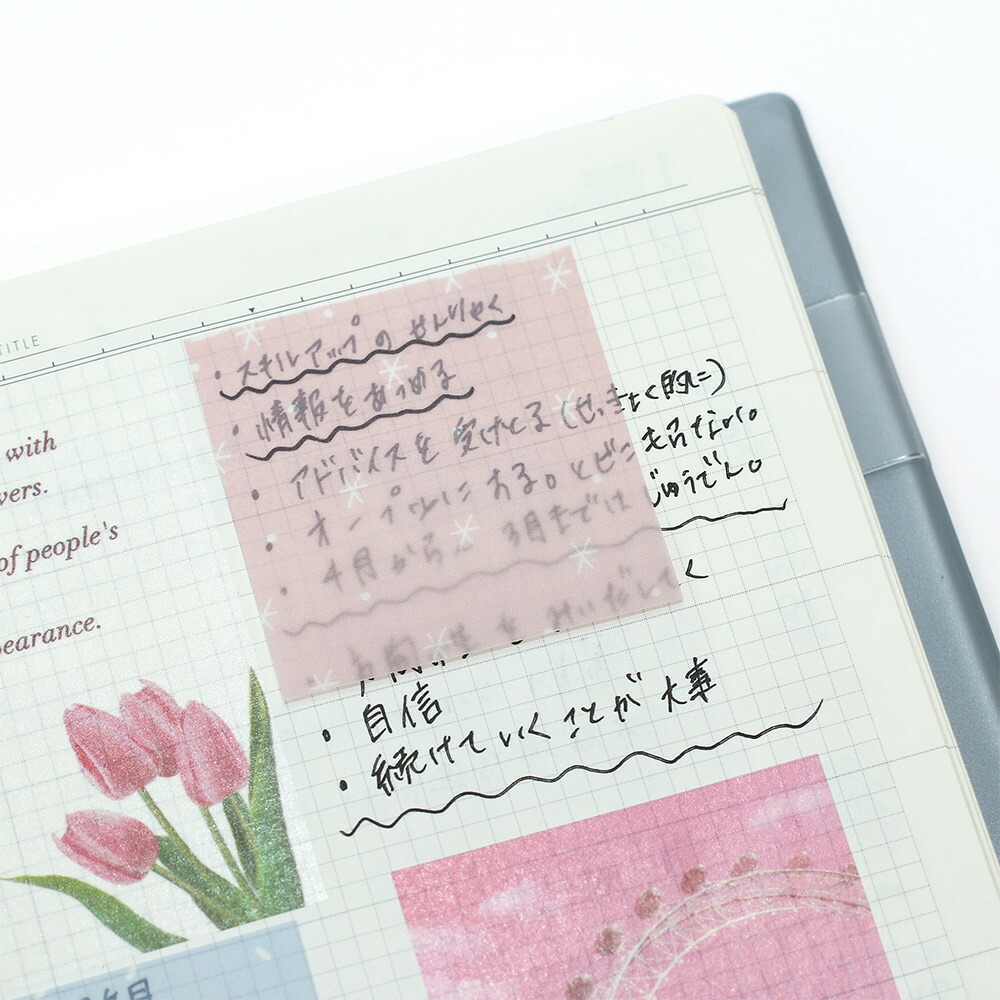 TITLE
with
vers.
of people's
pearance.
・スキルアップの せんりゃく
・情報をあつめる
・アドバイスを 受けとる (せっきょく的に)
・オープンに ある。とじこ
じゅうでん。
・4月から 3月までは
く
・自信
・続けていくことが 大事